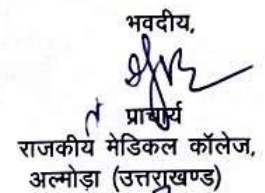 भवदीय,
प्राचार्य
राजकीय मेडिकल कॉलेज,
अल्मोड़ा (उत्तराखण्ड)